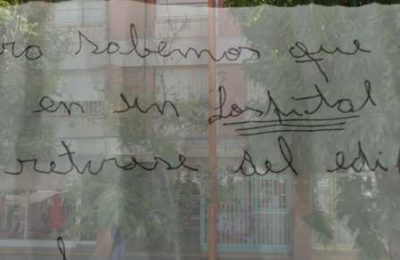 ro sabemos que
en un Hospital
retirase del edi